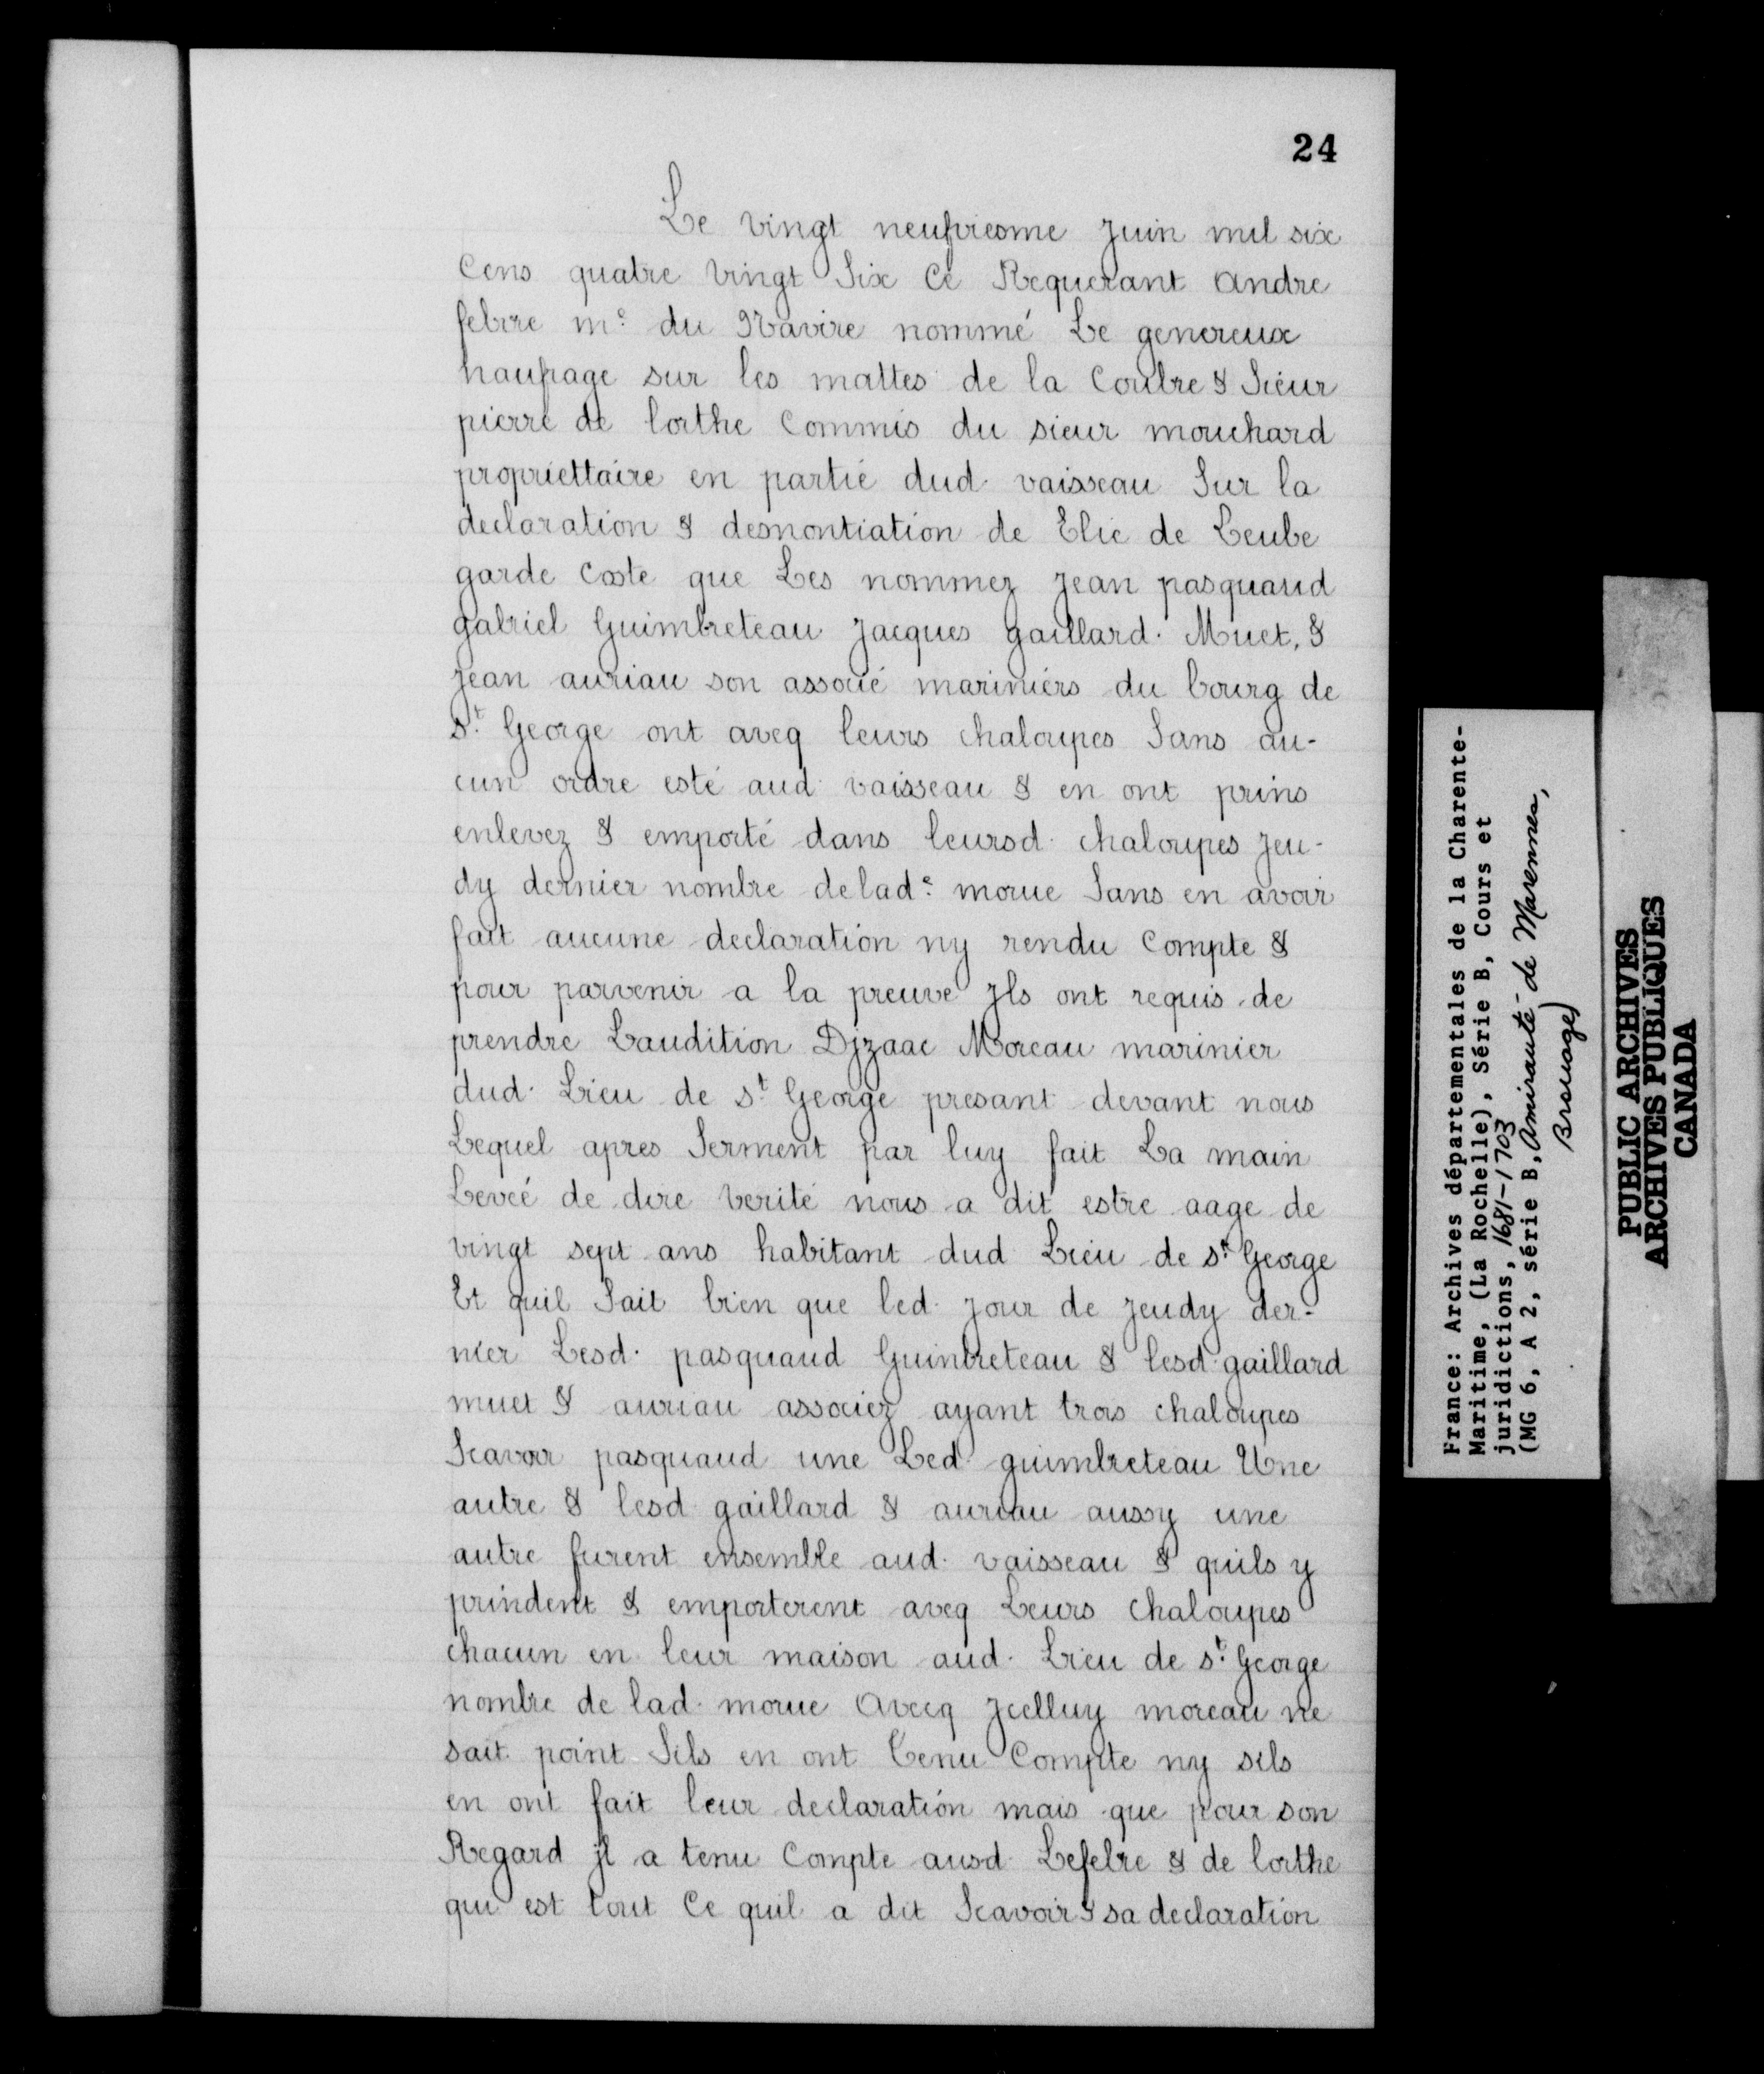 24
Le vingt neufviesme Juin mil six
Cens quatre vingt Six Ce Requerant Andre
febvre mᵉ du Navire nommé Le genereux
naufrage sur les mattes de la Coubre & Sieur
pierre de lorthe Commis du sieur mouchard
propriettaire en partie dud. vaisseau Sur la
declaration & desnontiation de Elie de Leube
garde Coste que Les nommez Jean pasquaud
gabriel Guimbreteau Jacques gaillard. Muet, &
Jean auriau son associé mariniers du bourg de
sᵗ George ont aveq leurs chaloupes Sans au-
cun ordre esté aud. vaisseau & en ont prins
enlevez & emporté dans leursd. chaloupes Jeu-
dy dernier nombre de ladᵉ morue Sans en avoir
fait aucune declaration ny rendu Compte &
pour parvenir a la preuve Jls ont requis de
prendre Laudition Djzaac Moreau marinier
dud. Lieu de sᵗ George presant devant nous
Lequel apres Serment par luy fait La main
Leveé de dire Verité nous a dit estre aage de
vingt sept ans habitant dud Lieu de sᵗ George
Et quil Sait bien que led. Jour de Jeudy der-
nier Lesd. pasquaud Guimbreteau & lesd. gaillard
muet & auriau associez ayant trois chaloupes
Scavoir pasquaud une Led guimbreteau Une
autre & lesd gaillard & auriau aussy une
autre furent ensemble aud. vaisseau & quils y
prindent & emporterent aveq Leurs chaloupes
chacun en leur maison aud. Lieu de sᵗ George
nombre de lad. morue Avecq Jcelluy moreau ne
sait point Sils en ont Tenu Compte ny sils
en ont fait leur declaration mais que pour son
Regard Jl a tenu Compte ausd Lefebre & de lorthe
qui est tout Ce quil a dit Scavoir & sa declaration
France: Archives départementales de la Charente-
Maritime, (La Rochelle), Série B, Cours et
juridictions, 1681-1703
(MG 6, A 2, série B, Amirauté de Marennes,
Brouage)
PUBLIC ARCHIVES
ARCHIVES PUBLIQUES
CANADA